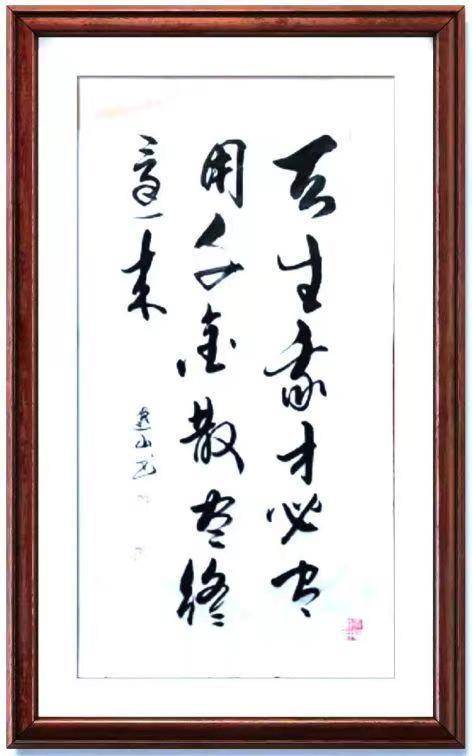 天生我才必有
用千金散尽终
还来
山书